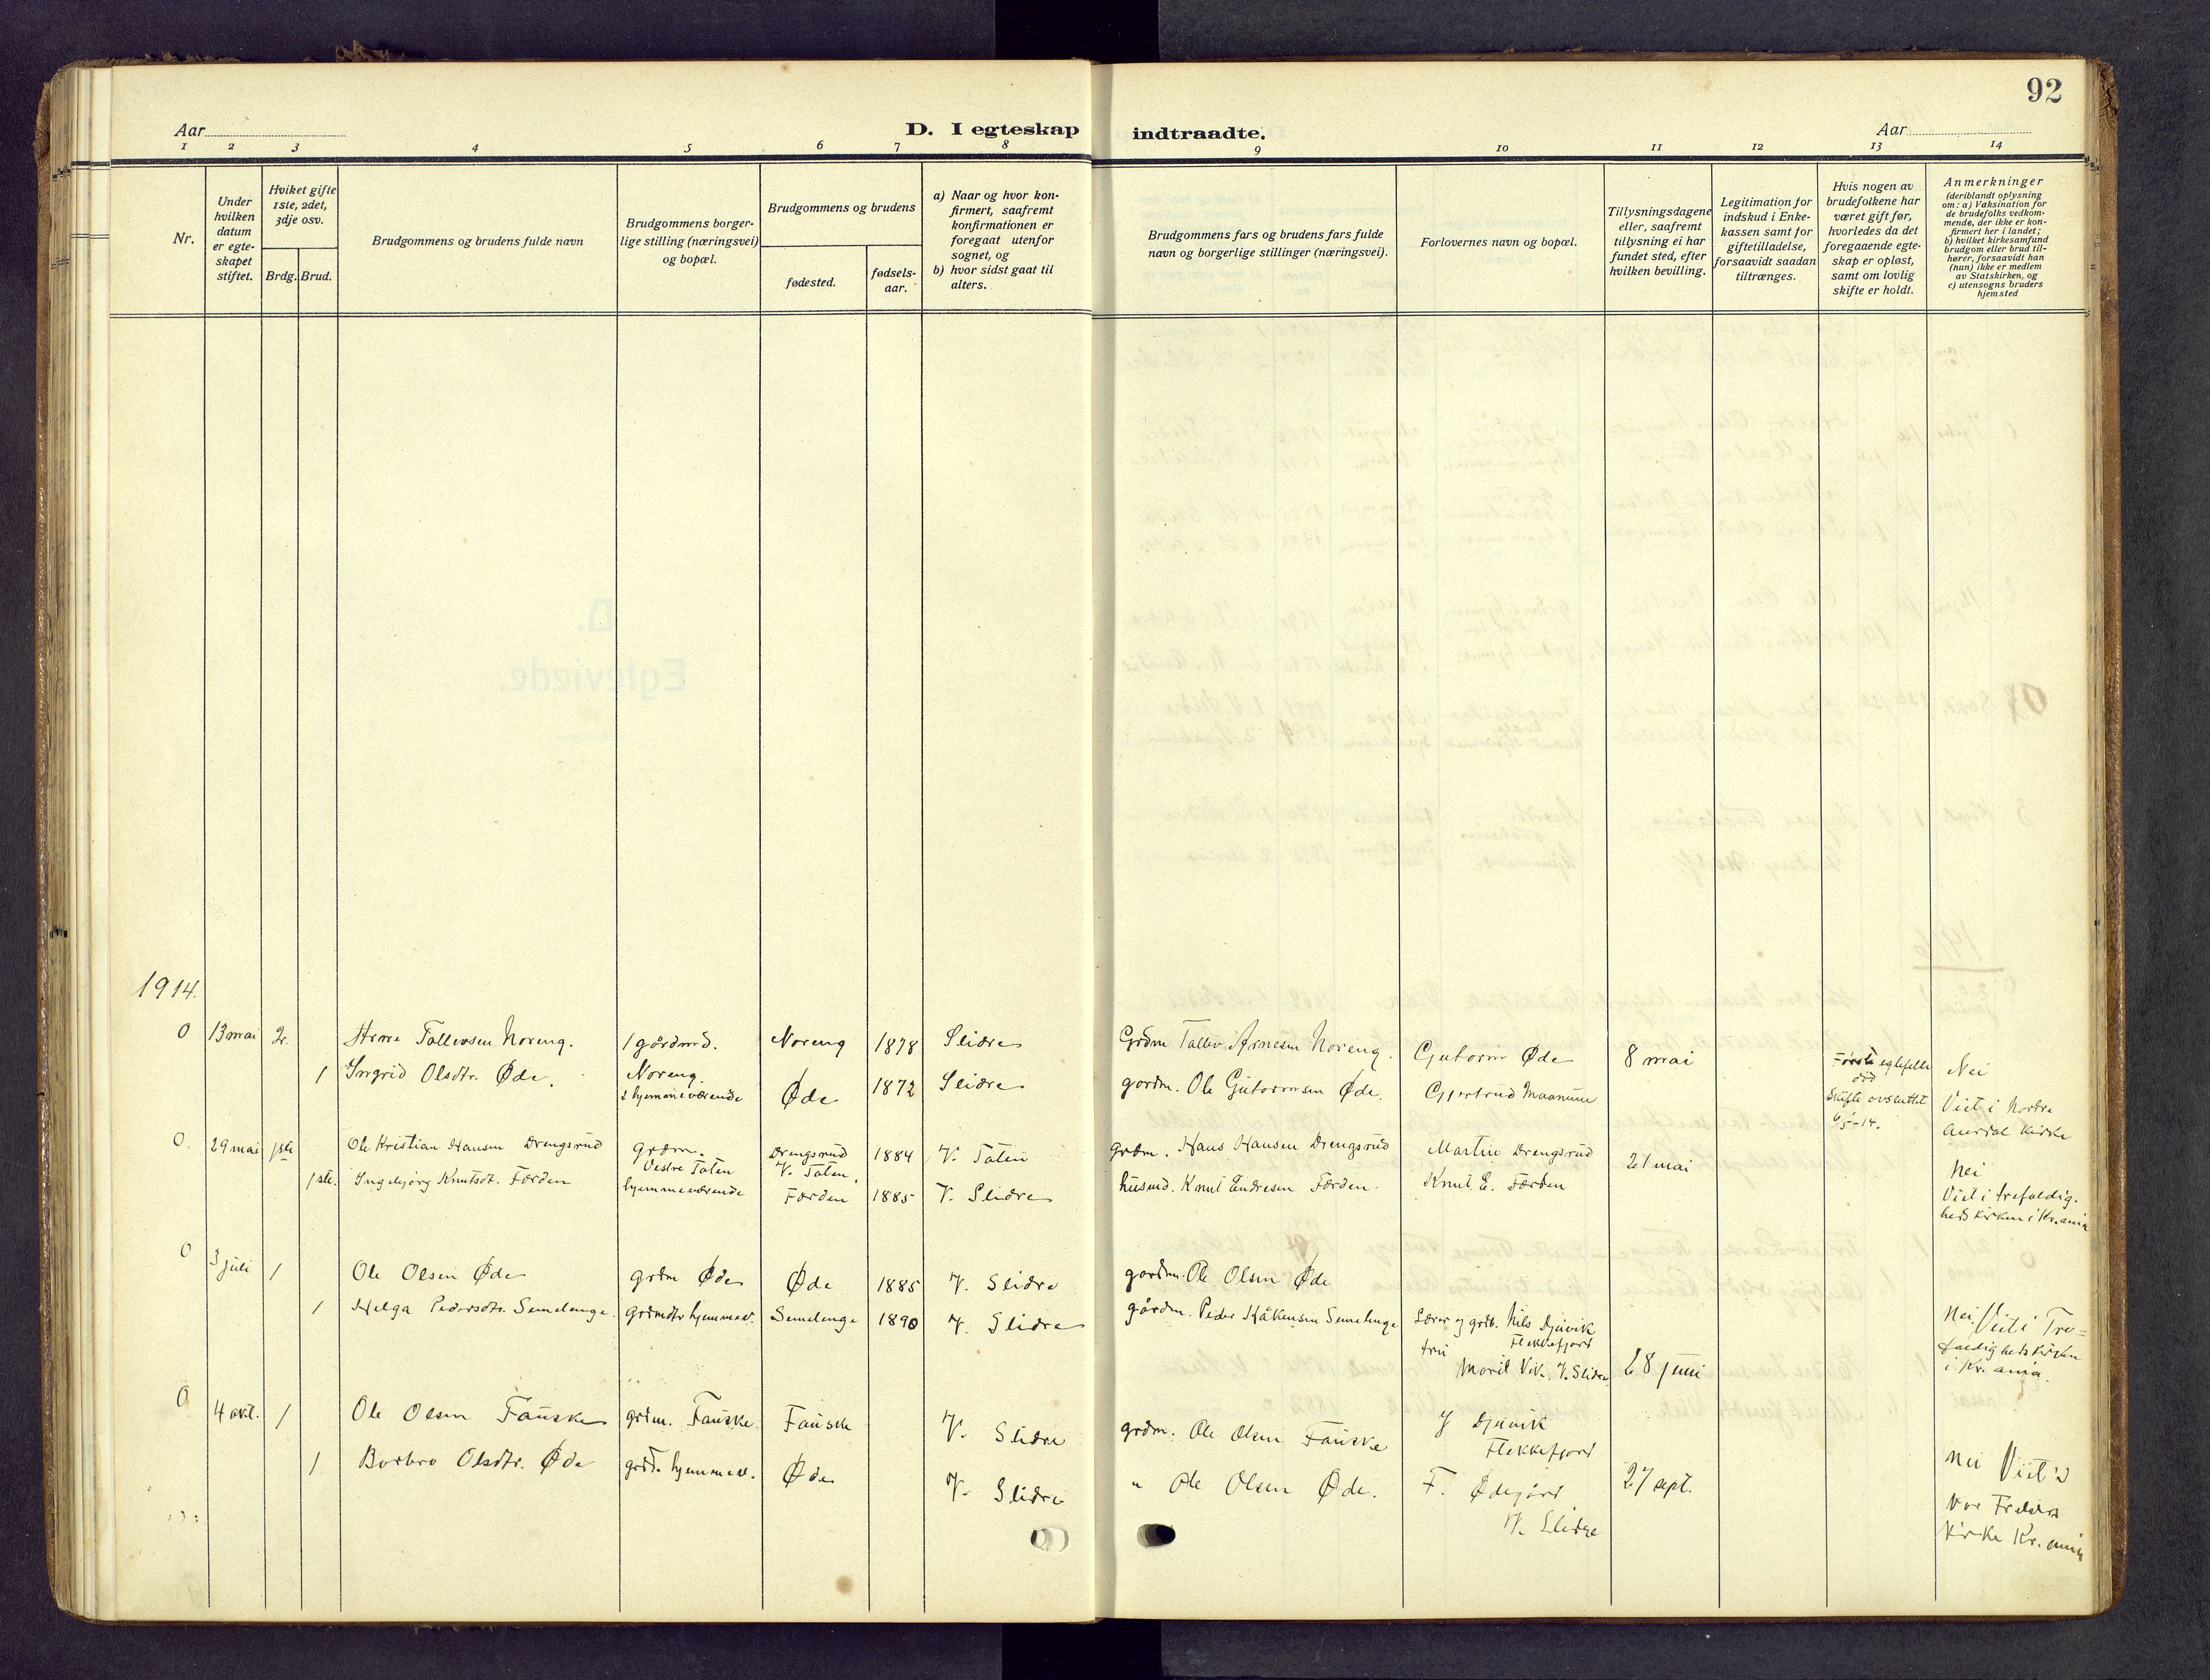 92
Aar
D. I egteskap indtraadte.
Aar
1 2 3 4 5 6 7 8 9 10 11 12 13 14
Nr.
Under hvilken datum er egte-skapet stiftet.
Hviket gifte 1ste, 2det, 3dje osv.
Brdg. Brud.
Brudgommens og brudens fulde navn
Brudgommens borger-lige stilling (næringsvei) og bopæl.
Brudgommens og brudens
fødested.
fødsels-aar.
a) Naar og hvor kon-firmert, saafremt konfirmationen er foregaat utenfor sognet, og
b) hvor sidst gaat til alters.
Brudgommens fars og brudens fars fulde navn og borgerlige stillinger (næringsvei).
Forlovernes navn og bopæl.
Tillysningsdagene eller, saafremt tillysning ei har fundet sted, efter hvilken bevilling.
Legitimation for indskud i Enke-kassen samt for giftetilladelse, forsaavidt saadan tiltrænges.
Hvis nogen av brudefolkene har været gift før, hvorledes da det foregaaende egte-skap er opløst, samt om lovlig skifte er holdt.
Anmerkninger
(deriblandt oplysning om: a) Vaksination for de brudefolks vedkom-mende, der ikke er kon-firmert her i landet;
b) hvilket kirkesamfund brudgom eller brud til-hører, forsaavidt han (hun) ikke er medlem av Statskirken, og
c) utensogns bruders hjemsted
1914.
0 13 mai 2. Arne Tollevsen Noreng. 1 gårdmd. Noreng 1878 Slidre Grdm Tollev Arnesen Noreng. Gutorm Øde 8 mai Første egtefelle død Nei
1 Ingrid Olsdtr. Øde. Noreng. 2 hjemmeværende Øde 1872 Slidre gordm. Ole Gutormsen Øde. Gjertrud Maanum Skifte avsluttet 6/5-14. Viet i Nordre Aurdal Kirke
0. 29 mai 1ste Ole Kristian Hansen Drengsrud Grdm. Vestre Toten Drengsrud V. Toten. 1884 V. Toten grdm. Hans Hansen Drengsrud Martin Drengsrud 21 mai Nei
1ste. Ingebjørg Knutsdt. Førden hjemmeværende Førden 1885 V. Slidre husmd. Knut Endresen Førden. Knut E. Førden Viet i trefoldig-hedskirken i Kr.ania
0 3 juli 1 Ole Olsen Øde grdm Øde Øde 1885 V. Slidre gordm. Ole Olsen Øde
1 Helga Pedersdtr. Semelenge. grdmdtr hjemmev. Semelenge 1890 V. Slidre gårdm. Peder Håkensen Semelenge Lærer og grdb. Nils Djuvik Flekkefjord
Moril Vik. V. Slidre 28 juni Nei Viet i Tre=foldighedskirken i Kr. ania.
0 4 okt. 1 Ole Olsen Fauske grdm. Fauske. Fauske V. Slidre grdm. Ole Olsen Fauske J Djuvik Flekkefjord
1 Borbro Olsdtr. Øde hjemmev. Øde V. Slidre " Ole Olsen Øde. F. Ødegård V. Slidre 27 sept. Nei Viet i Vor Frelsers Kirke Kr. ania